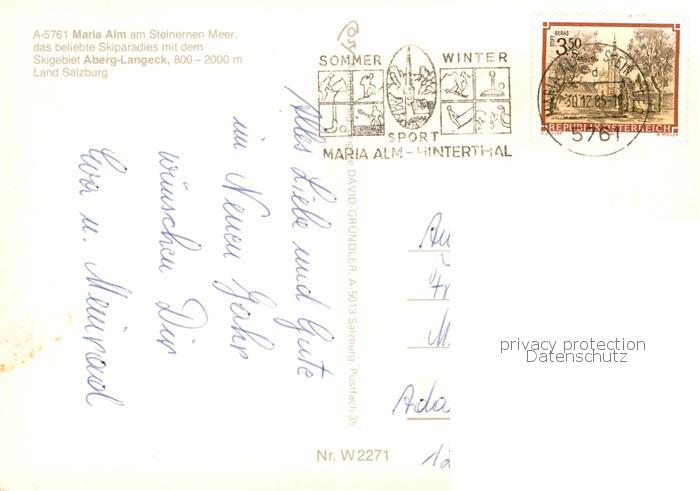 A-5761 Maria Alm am Steinernen Meer,
das beliebte Skiparadies mit dem
Skigebiet Aberg-Langeck, 800 – 2000 m
Land Salzburg
SOMMER WINTER
SPORT
MARIA ALM – HINTERTHAL
STIFT GERAS
3.50
REPUBLIK ÖSTERREICH
30.12.85
5761
Alles Liebe und Gute
im Neuen Jahr
wünschen Dir
Eva u. Meinrad
DAVID-GRÜNDLER, A 5013 Salzburg, Postfach 35
Nr. W 2271
privacy protection
Datenschutz